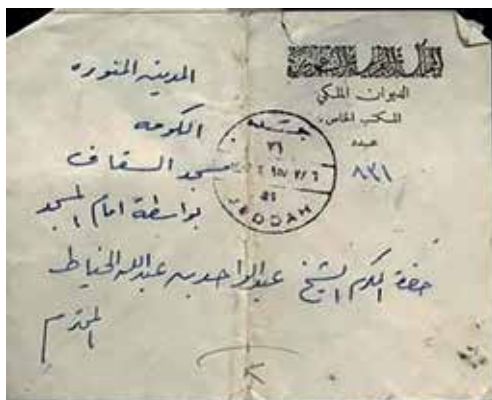 المملكة العربية السعودية
الديوان الملكي
المكتب الخاص
عدد
٨٣١
المدينه المنوره
الكومه
مسجد السقاف
بواسطة امام المسجد
حضرة المكرم الشيخ عبدالواحد بن عبدالله الخياط
المحترم
جدة
٢٦
JEDDAH